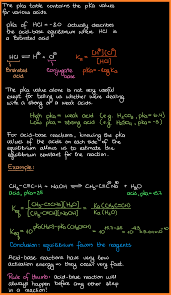 The pKa table contains the pKa values
for various acids.
pKa of HCl = -8.0 actually describes
the acid-base equilibrium where HCl is
a Brønsted acid
HCl ⇌ H⊕ + Cl⊖
Ka = [H⊕][Cl⊖]
[HCl]
Brønsted
acid
Conjugate
base
pKa = -log Ka
The pKa value alone is not very useful
except for telling us whether we're dealing
with a strong or a weak acids.
High pKa = weak acid
Low pKa = strong acid
For acid-base reactions, knowing the pKa
values of the acids on each side of the
equilibrium allows us to estimate the
equilibrium constant for the reaction.
Example:
Conclusion: equilibrium favors the reagents
Acid-base reactions have very low
activation energy ⇒ they occur very fast.
Rule of thumb: acid-base reaction will
always happen before any other step
in a reaction!